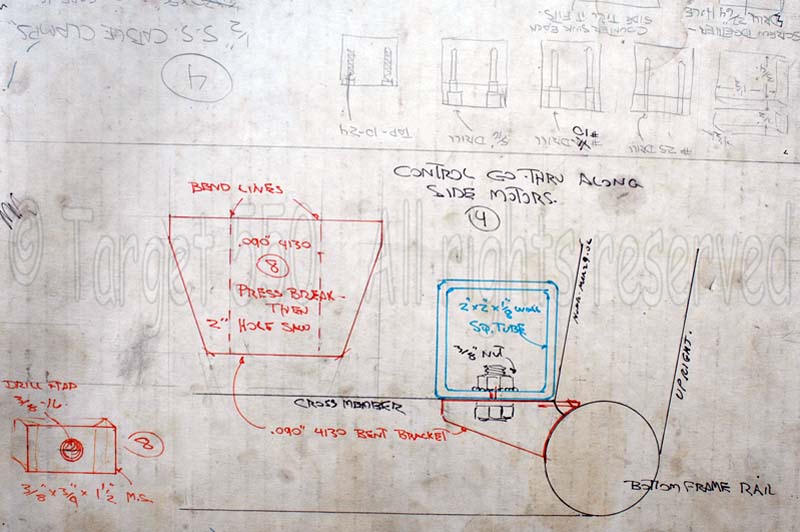 1/2" S.S. CABLE CLAMPS
4
SCREW TOGETHER -
DRILL 21/64 HOLE
COUNTER SINK EACH
SIDE TILL IT FITS.
TAP-10-24
5/16 DRILL
#10
DRILL
#25 DRILL
CONTROL GO-THRU ALONG
SIDE MOTORS.
4
BEND LINES
.090" 4130
8
PRESS BREAK-
THEN
2" HOLE SAW
2" x 2" x 1/8 WALL
SQ. TUBE
3/8" NUT
UPRIGHT.
CROSS MEMBER
.090" 4130 BENT BRACKET
BOTTOM FRAME RAIL
DRILL & TAP
3/8-16
8
3/8" x 3/4 x 1 1/2 M.S.
© Target 550 All rights reserved